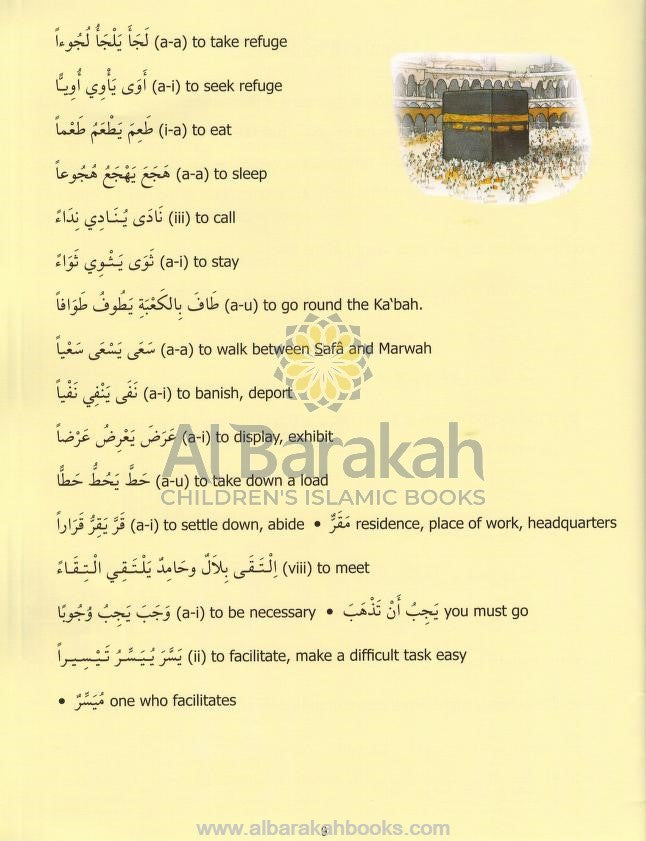 لَجَأَ يَلْجَأُ لُجُوءاً (a-a) to take refuge
أَوَى يَأْوِي أُوِيًّا (a-i) to seek refuge
طَعِمَ يَطْعَمُ طَعْماً (i-a) to eat
هَجَعَ يَهْجَعُ هُجُوعاً (a-a) to sleep
نَادَى يُنَادِي نِدَاءً (iii) to call
ثَوَى يَثْوِي ثَوَاءً (a-i) to stay
طَافَ بِالكَعْبَةِ يَطُوفُ طَوَافاً (a-u) to go round the Ka‘bah.
سَعَى يَسْعَى سَعْياً (a-a) to walk between Safâ and Marwah
نَفَى يَنْفِي نَفْياً (a-i) to banish, deport
عَرَضَ يَعْرِضُ عَرْضاً (a-i) to display, exhibit
Al Barakah
حَطَّ يَحُطُّ حَطًّا (a-u) to take down a load
CHILDREN'S ISLAMIC BOOKS
قَرَّ يَقِرُّ قَرَاراً (a-i) to settle down, abide • مَقَرٌّ residence, place of work, headquarters
اِلْتَقَى بِلاَلٌ وحَامِدٌ يَلْتَقِي الْتِقَاءً (viii) to meet
وَجَبَ يَجِبُ وُجُوبًا (a-i) to be necessary • يَجِبُ أَنْ تَذْهَبَ you must go
يَسَّرَ يُيَسِّرُ تَيْسِيراً (ii) to facilitate, make a difficult task easy
• مُيَسِّرٌ one who facilitates
9
www.albarakahbooks.com